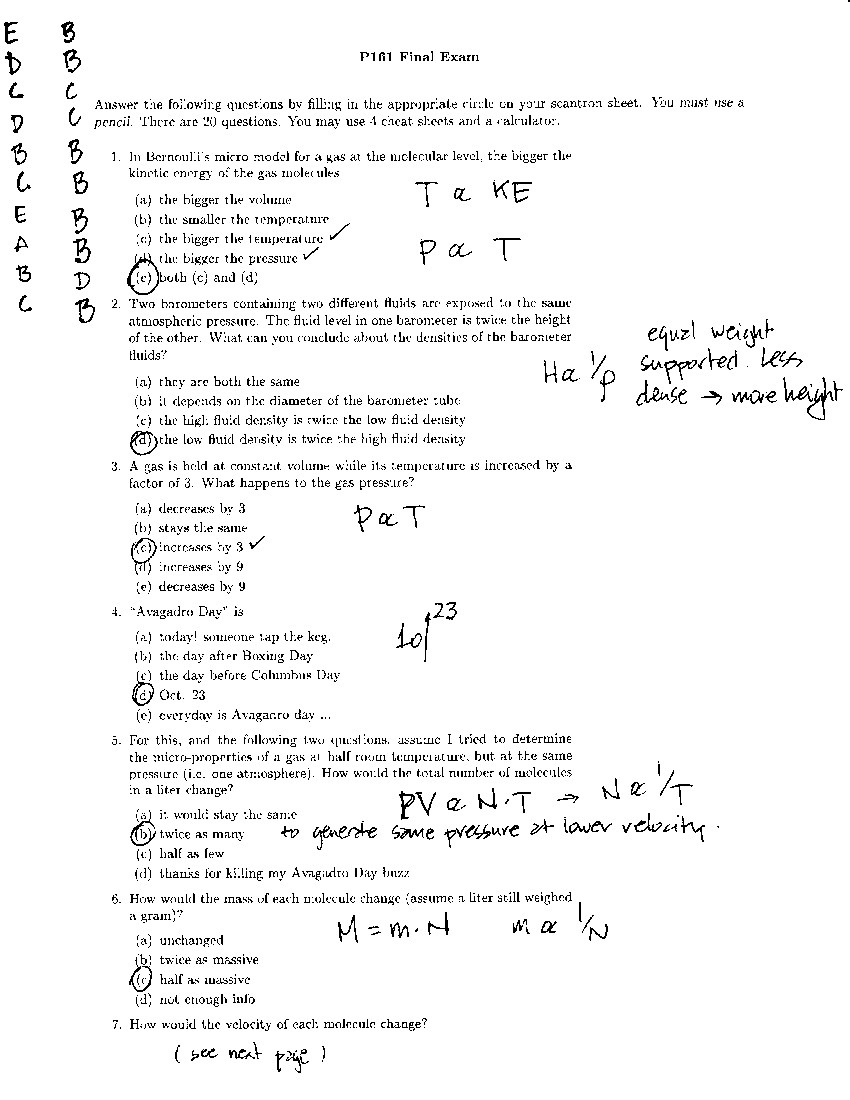 E B
D B
C C
D C
B B
C B
E B
A B
B D
C B
P161 Final Exam
Answer the following questions by filling in the appropriate circle on your scantron sheet. You must use a
pencil. There are 20 questions. You may use 4 cheat sheets and a calculator.
1. In Bernoulli's micro model for a gas at the molecular level, the bigger the
kinetic energy of the gas molecules
(a) the bigger the volume
(b) the smaller the temperature
(c) the bigger the temperature ✓
(d) the bigger the pressure ✓
(e) both (c) and (d)
T α KE
P α T
2. Two barometers containing two different fluids are exposed to the same
atmospheric pressure. The fluid level in one barometer is twice the height
of the other. What can you conclude about the densities of the barometer
fluids?
(a) they are both the same
(b) it depends on the diameter of the barometer tube
(c) the high fluid density is twice the low fluid density
(d) the low fluid density is twice the high fluid density
H α 1/ρ
equal weight
supported. Less
dense → more height
3. A gas is held at constant volume while its temperature is increased by a
factor of 3. What happens to the gas pressure?
(a) decreases by 3
(b) stays the same
(c) increases by 3 ✓
(d) increases by 9
(e) decreases by 9
P α T
4. "Avagadro Day" is
(a) today! someone tap the keg.
(b) the day after Boxing Day
(c) the day before Columbus Day
(d) Oct. 23
(e) everyday is Avagadro day ...
10↑23
5. For this, and the following two questions, assume I tried to determine
the micro-properties of a gas at half room temperature, but at the same
pressure (i.e. one atmosphere). How would the total number of molecules
in a liter change?
(a) it would stay the same
(b) twice as many
(c) half as few
(d) thanks for killing my Avagadro Day buzz
PV α N·T → N α 1/T
to generate same pressure at lower velocity.
6. How would the mass of each molecule change (assume a liter still weighed
a gram)?
(a) unchanged
(b) twice as massive
(c) half as massive
(d) not enough info
M = m·N m α 1/N
7. How would the velocity of each molecule change?
(see next page)